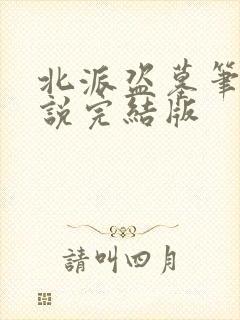 北派盗墓筆
說完結版
請叫四月